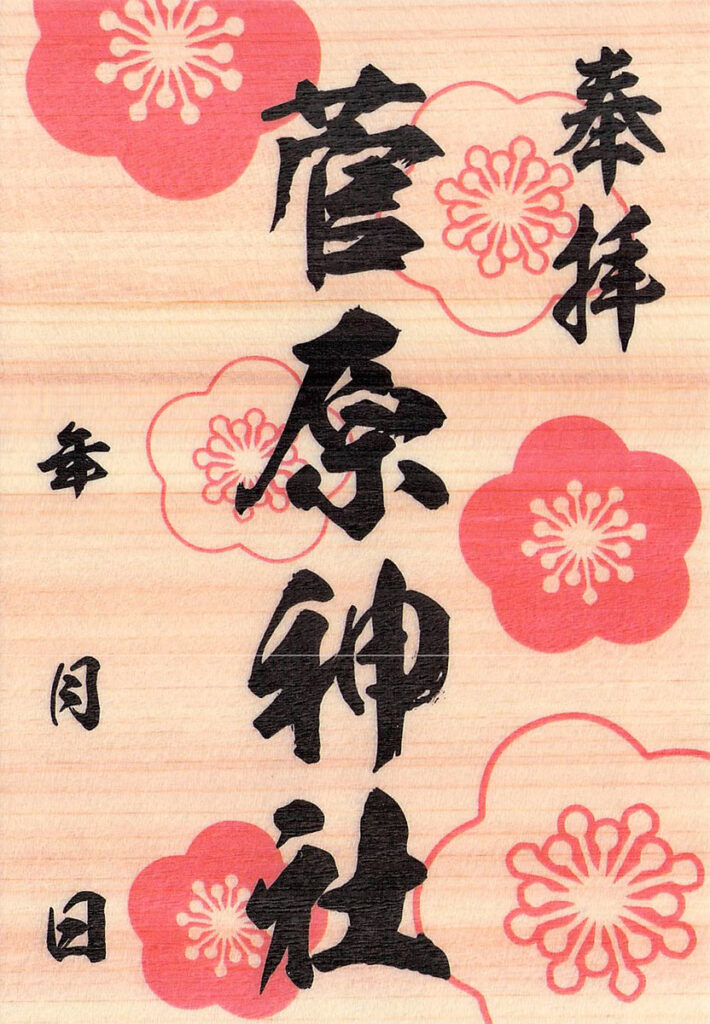 奉拝
菅原神社
年 月 日